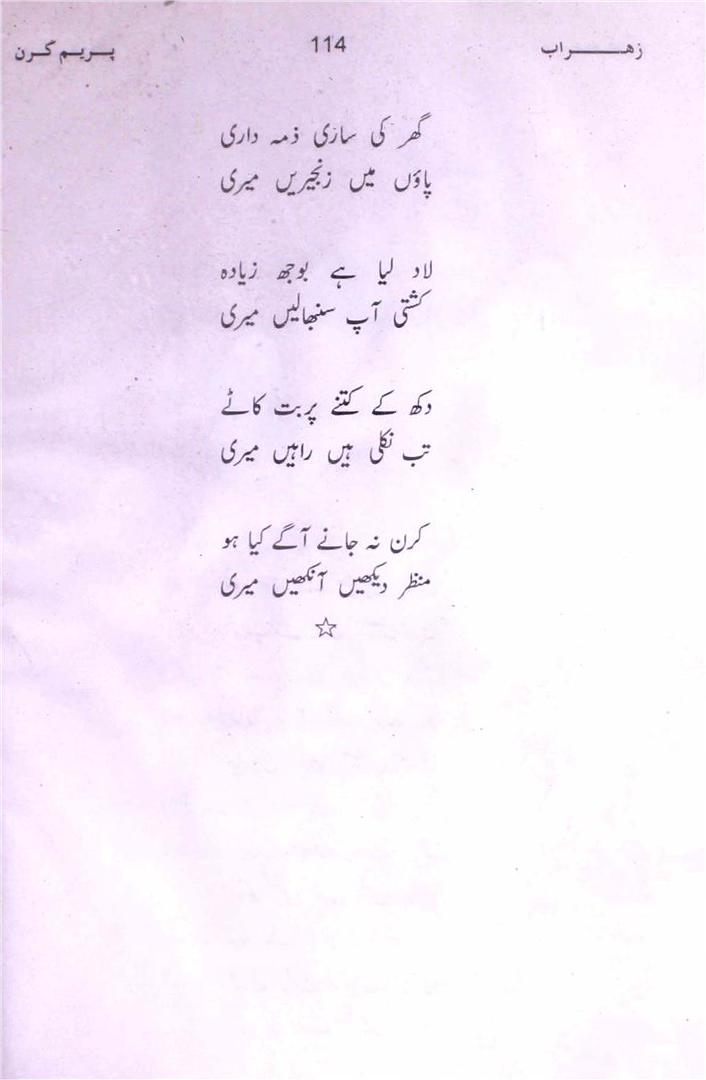 زھــــراب 114 پریم کرن
گھر کی ساری ذمہ داری
پاؤں میں زنجیریں میری
لاد لیا ہے بوجھ زیادہ
کشتی آپ سنبھالیں میری
دکھ کے کتنے پربت کاٹے
تب نکلی ہیں راہیں میری
کرن نہ جانے آگے کیا ہو
منظر دیکھیں آنکھیں میری
☆